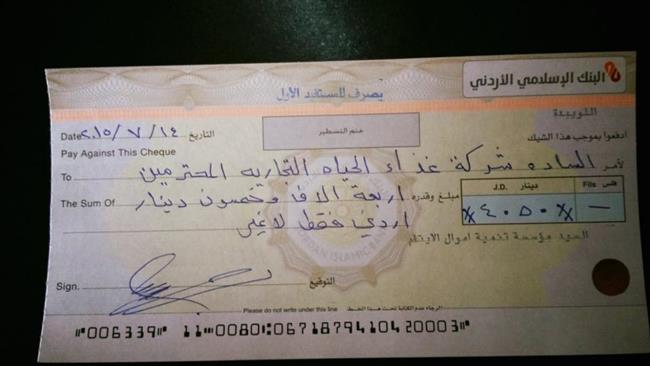 البنك الإسلامي الأردني
يصرف للمستفيد الأول
اللويبدة
Date ٢٠١٥/٧/١٤ التاريخ
ختم التسطير
ادفعوا بموجب هذا الشيك
Pay Against This Cheque
To السادة شركة غذاء الحياه التجاريه المحترمين لأمر
The Sum Of اربعة الاف وخمسون دينار مبلغ وقدره
اردني فقط لا غير
فلس Fils دينار J.D.
— #٤٠٥٠#
السيد مؤسسة تنمية اموال الايتام
JORDAN ISLAMIC BANK
Sign. التوقيع
Please do not write under this line الرجاء عدم الكتابة تحت هذا الخط
006339 11 0080 067187941042 0003